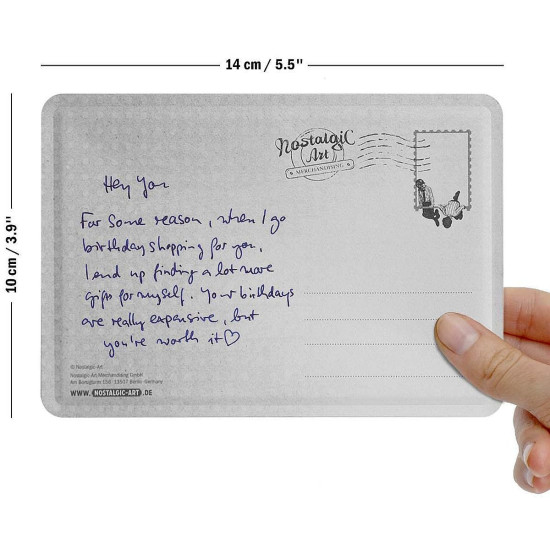 14 cm / 5.5"
10 cm / 3.9"
Nostalgic
Art
MERCHANDISING
Hey You
For some reason, when I go
birthday shopping for you,
I end up finding a lot more
gifts for myself. Your birthdays
are really expansive, but
you're worth it♡
© Nostalgic-Art
Nostalgic-Art Merchandising GmbH
Berlin · Germany
WWW. NOSTALGIC-ART .DE